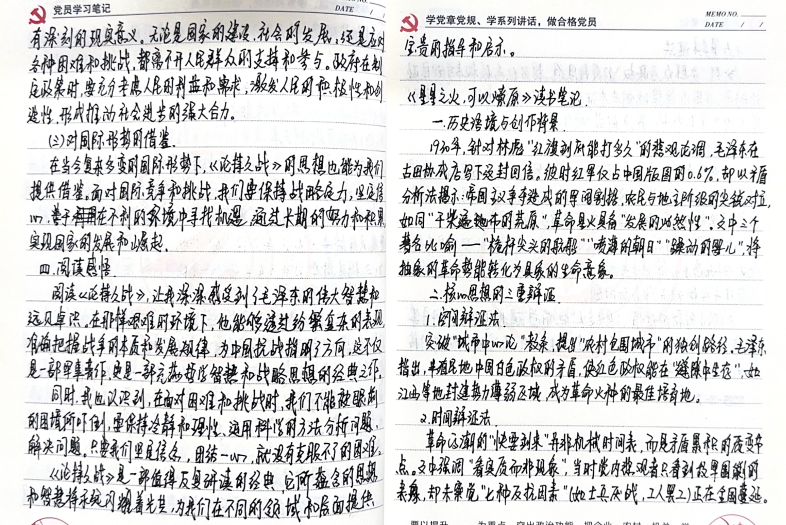 党员学习笔记
MEMO NO.
DATE / /
有深刻的现实意义。无论是国家的建设、社会的发展,还是应对
各种困难和挑战,都离不开人民群众的支持和参与。政府在制
定政策时,要充分考虑人民的利益和需求,激发人民的积极性和创
造性,形成推动社会进步的强大合力。
(三)对国际形势的借鉴.
在当今复杂多变的国际形势下,《论持久战》的思想也能为我们
提供借鉴。面对国际竞争和挑战,我们要保持战略定力,坚定信
心,善于在不利的环境中寻找机遇,通过长期的努力和积累,
实现国家的发展和崛起.
四.阅读感悟.
阅读《论持久战》,让我深深感受到了毛泽东的伟大智慧和
远见卓识。在那样艰难的环境下,他能够透过纷繁复杂的表象
准确把握战争的本质和发展规律,为中国抗战指明了方向,这不仅
是一部军事著作,更是一部充满哲学智慧和战略思想的经典之作。
同时,我也认识到,在面对困难和挑战时,我们不能被眼前
的困境所吓倒,要保持冷静和理性,运用科学的方法分析问题、
解决问题。只要我们坚定信念,团结一心,就没有克服不了的困难。
《论持久战》是一部值得反复研读的经典,它所蕴含的思想
和智慧将永远闪耀着光芒,为我们在不同的领域和层面提供
学党章党规、学系列讲话,做合格党员
MEMO NO.
DATE / /
宝贵的指导和启示。
《星星之火,可以燎原》读书笔记.
一.历史语境与创作背景.
1930年,针对林彪"红旗到底能打多久"的悲观论调,毛泽东在
古田协成店写下这封回信。彼时红军仅占中国版图的0.6%,却以矛盾
分析法揭示:帝国主义争夺造成的军阀割据,农民与地主阶级的尖锐对立,
如同"干柴遍地布的荒原",革命星火具备"发展的必然性"。文中三个
著名比喻——"桅杆尖头的航船""喷薄的朝日""躁动的婴儿",将
抽象的革命势能转化为具象的生命意象。
二.核心思想的三重辩证.
1.空间辩证法
突破"城市中心论"教条,提出"农村包围城市"的独创路径。毛泽东
指出,半殖民地中国白色政权的矛盾,使红色政权能在"缝隙中生存",如
江西等地封建势力薄弱区域,成为革命火种的最佳培育地。
2.时间辩证法.
革命高潮的"快要到来"并非机械时间表,而是矛盾累积的质变节
点。文中强调"看实质而非现象",当时党内悲观者只看到敌军围剿的
表象,却未察觉"七种反抗因素"(如士兵反战,工人罢工)正在全国蔓延。